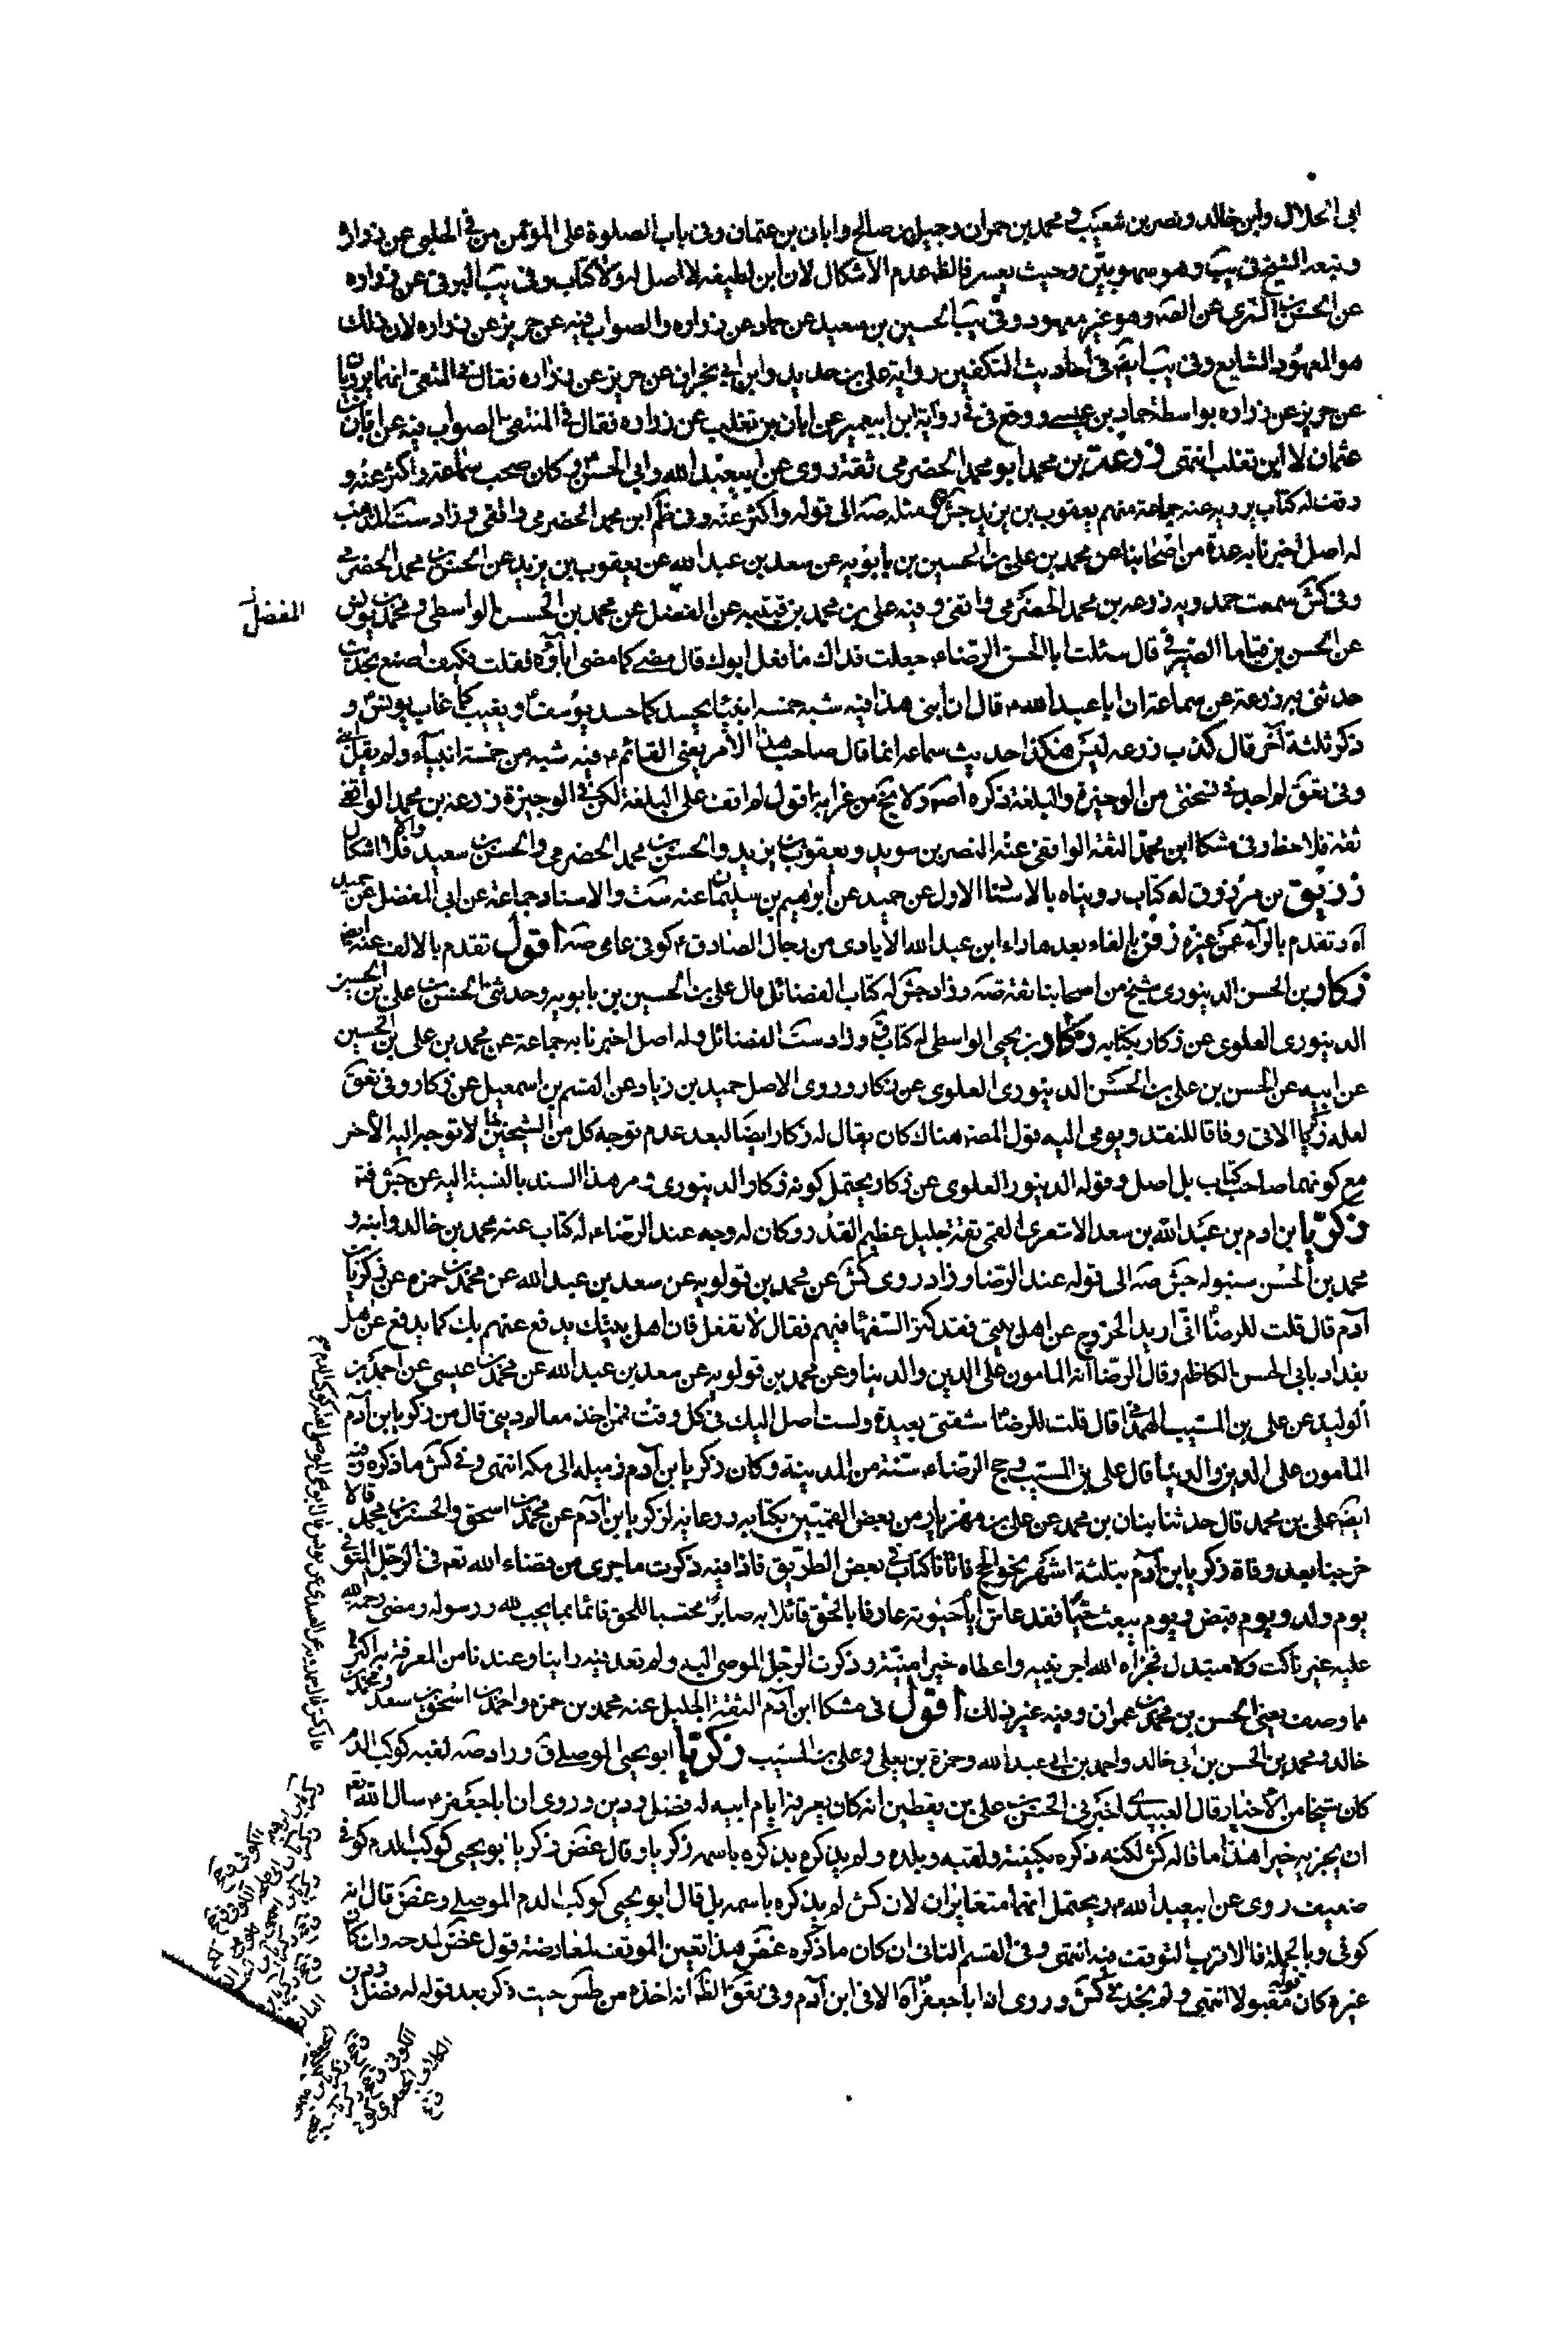 ابى الحلال وابن خالد ونصر بن شعيب ومحمد بن حمران وجميل بن صالح وابان بن عثمان وفى باب الصلوة على المؤمن من فى الحلبى عن زراره
وتبعه الشيخ فى يب وهو سهو بيّن وحيث يعسر فالظ عدم الاشكال لان ابن لطيفه لا اصل له ولا كتاب وفى يب البرقى عن زراره
عن الحسن بن السرى عن الصّ وهو غير معهود وفى يب الحسين بن سعيد عن حماد عن زراره والصواب فيه عن حريز عن زراره لان ذلك
هو المعهود الشايع وفى يب ايض فى احاديث التكفين رواية على بن حديد وابن ابى نجران عن حريز عن زراره فقال فى المنتقى انهما يرويان
عن حريز عن زراره بواسطة حماد بن عيسى ووقع فى فى رواية ابن ابيعمير عن ابان بن تغلب عن زراره فقال فى المنتقى الصواب فيه عن ابان بن
عثمان لا ابن تغلب انتهى زرعة بن محمد ابو محمد الحضرمى ثقة روى عن ابيعبد الله وابى الحسن وكان صحب سماعة واكثر عنه و
وقف له كتاب يرويه عنه جماعة منهم يعقوب بن يزيد جش مثله صه الى قوله واكثر عنه وفى ظم ابن محمد الحضرمى واقفى وزاد ست المذهب
له اصل اخبرنا به عدة من اصحابنا عن محمد بن على بن الحسين بن بابويه عن سعد بن عبد الله عن يعقوب بن يزيد عن الحسن بن محمد الحضرمى
وفى كش سمعت حمدويه زرعه بن محمد الحضرمى واقفى وفيه على بن محمد بن قتيبه عن الفضل عن محمد بن الحسن الواسطى ومحمد بن يونس
المفضل
عن الحسن بن قياما الصيرفى قال سئلت ابا الحسن الرضاء جعلت فداك ما فعل ابوك قال مضى كما مضى اباؤه فقلت فكيف اصنع بحديث
حدثنى به زرعة عن سماعة ان ابا عبد الله قال ان ابنى هذا فيه شبه خمسه انبياء يحسد كما حسد يوسف ويغيب كما غاب يونس و
ذكر ثلثة اخر قال كذب زرعه ليس هكذا حديث سماعه انما قال صاحب هذا الامر يعنى القائم فيه شبه من خمسة انبياء ولم يقل ابنى
وفى تعق لم اجد فى نسختى من الوجيزة والبلغة ذكره اصه ولا يخ من غرابه اقول لم اقف على البلغة لكن فى الوجيزة زرعه بن محمد الواقفى
ثقة فلاحظ وفى مشكا ابن محمد الثقة الواقفى عنه النصر بن سويد ويعقوب بن يزيد والحسن بن محمد الحضرمى والحسن بن سعيد والا فلا اشكال
زريق بن مرزوق له كتاب رويناه بالاسناد الاول عن حميد عن ابرهيم بن سليمان عنه ست والاسناد جماعة عن ابى المفضل عن حميد
اه وتقدم بالراء عن غيره زفر بالفاء بعدها راء ابن عبد الله الايادى من رجال الصادق كوفى عامى صه اقول تقدم بالالف عنه ايضا
زكار بن الحسن الدينورى شيخ من اصحابنا ثقة صه وزاد جش له كتاب الفضائل قال على بن الحسين بن بابويه وحدثنى الحسن بن على بن الحسين
الدينورى العلوى عن زكار بكتابه زكار بن يحيى الواسطى له كتاب ق وزاد ست الفضائل وله اصل اخبرنا به جماعة عن محمد بن على بن الحسين
عن ابيه عن الحسن بن على بن الحسن الدينورى العلوى عن زكار وروى الاصل حميد بن زياد عن القسم بن اسمعيل عن زكار وفى تعق
لعله زكريا الاتى وفاقا للنقد ويومى اليه قول المص هناك كان يقال له زكار ايضا لبعد عدم توجه كل من الشيخين لما توجه اليه الاخر
مع كونهما صاحب كتاب بل اصل وقوله الدينورى العلوى عن زكار يحتمل كونه زكار الدينورى ومر هذا السند بالنسبة اليه عن جش فته
زكريّا بن ادم بن عبد الله بن سعد الاشعرى القمى ثقة جليل عظيم القدر وكان له وجه عند الرضاء له كتاب عنه محمد بن خالد وابنه و
محمد بن الحسن سنبوله جش صه الى قوله عند الرضا وزاد روى كش عن محمد بن قولويه عن سعد بن عبد الله عن محمد بن حمزه عن زكريا بن
آدم قال قلت للرضا انى اريد الخروج عن اهل بيتى فقد كثر السفهاء فيهم فقال لا تفعل فان اهل بيتك يدفع عنهم بك كما يدفع عن اهل
بغداد بابى الحسن الكاظم وقال الرضا انه المامون على الدين والدينا وعن محمد بن قولويه عن سعد بن عبد الله عن محمد بن عيسى عن احمد بن
الوليد عن على بن المسيب الهمدانى قال قلت للرضا شقتى بعيدة ولست اصل اليك فى كل وقت فمن اخذ معالم دينى قال من زكريا بن آدم
المامون على الدين والدنيا قال على بن المسيب وحج الرضاء سنة من المدينة وكان زكريا بن آدم زميله الى مكه انتهى وفى كش ما ذكره وفيه
ايض على بن محمد قال حدثنا بنان بن محمد عن على بن مهزيار من بعض القميين بكتابه ودعائه لزكريا بن آدم عن محمد بن اسحق والحسن بن محمد قالا
خرجنا بعد وفاة زكريا بن آدم بثلثة اشهر نحو الحج فاتانا كتابه فى بعض الطريق فاذا فيه ذكرت ما جرى من قضاء الله تعم فى الرجل المتوفى
يوم ولد ويوم قبض ويوم يبعث حيّا فقد عاش ايام حيوته عارفا بالحق قائلا به صابرا محتسبا للحق قائما بما يجب لله ورسوله ومضى رحمه الله
عليه غير ناكث ولا مبتدل فجزاه الله اجر نيته واعطاه خير امنيّته وذكرت الرجل الموصى اليه ولم تعد فيه راينا وعندنا من المعرفة به اكثر
مما وصفت يعنى الحسن بن محمد بن عمران وفيه غير ذلك اقول فى مشكا ابن آدم الثقة الجليل عنه محمد بن حمزه واحمد بن اسحق بن سعد ومحمد بن
خالد ومحمد بن الحسن بن ابى خالد واحمد بن ابى عبد الله وحمزة بن يعلى وعلى بن المسيب زكريّا ابو يحيى الموصلى ق وزاد صه لقبه كوكب الدم
كان شيخا من الاخيار قال العبيدى اخبرنى الحسن بن على بن يقطين انه كان يعرفه ايام ابيه له فضل ودين وروى ان ابا جعفر سال الله تعم
ان يجزيه خيرا هذا ما قاله كش لكنه ذكره بكنيته ولقبه وبلده ولم يذكره باسمه زكريا وقال غض زكريا ابو يحيى كوكب الدم كوفى
ضعيف روى عن ابيعبد الله ويحتمل انهما متغايران لان كش لم يذكره باسمه بل قال ابو يحيى كوكب الدم الموصلى وغض قال انه
كوفى وبالجملة فالاقرب التوقف فيه انتهى وفى القسم الثانى ان كان ما ذكره غض هذا تعين الموقف لمعارضة قول غض لمدحه وان كان
غيره كان قوله مقبولا انتهى ولم نجد فى كش وروى ان ابا جعفر اه الا فى ابن آدم وفى تعق الظ انه اخذه من طس حيث ذكر بعد قوله له فضل ودين